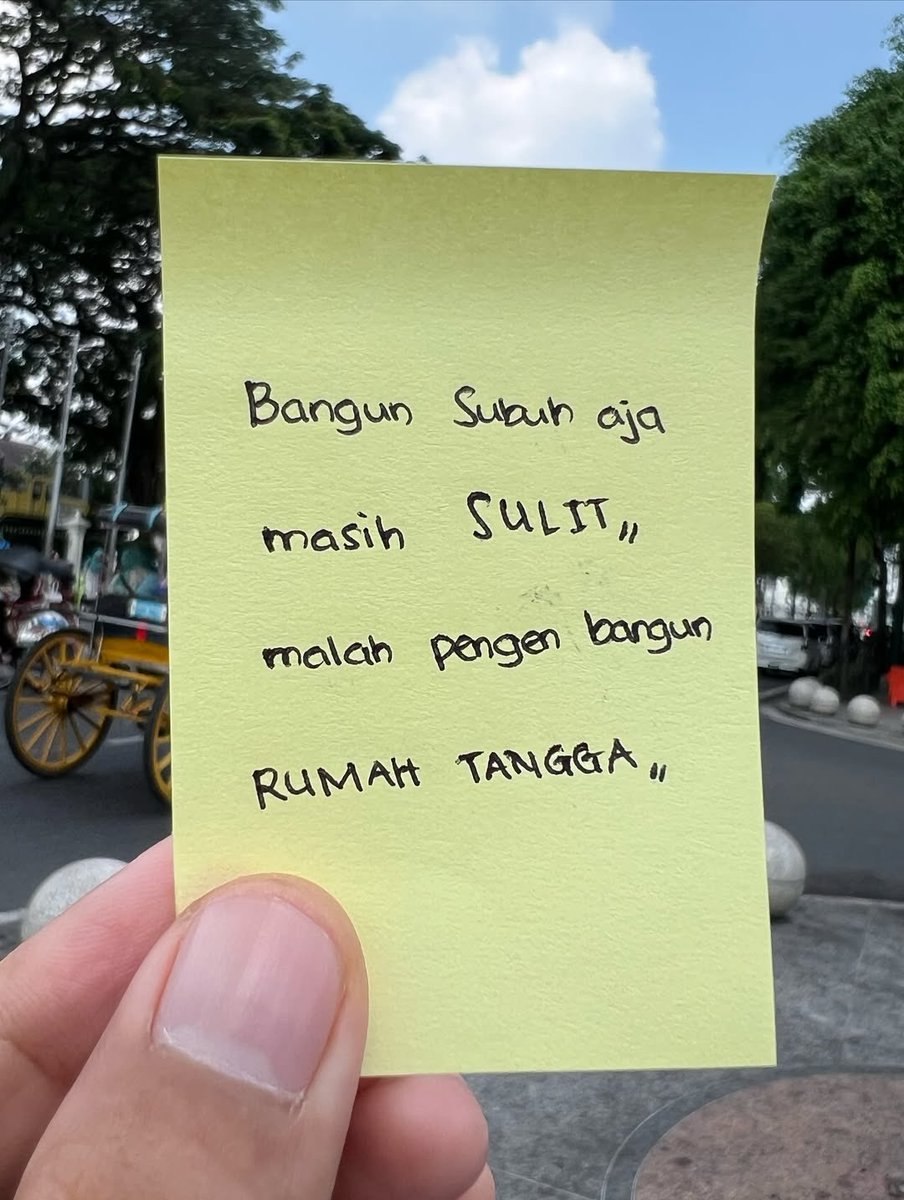 Bangun Subuh aja
masih SULIT,,
malah pengen bangun
RUMAH TANGGA,,